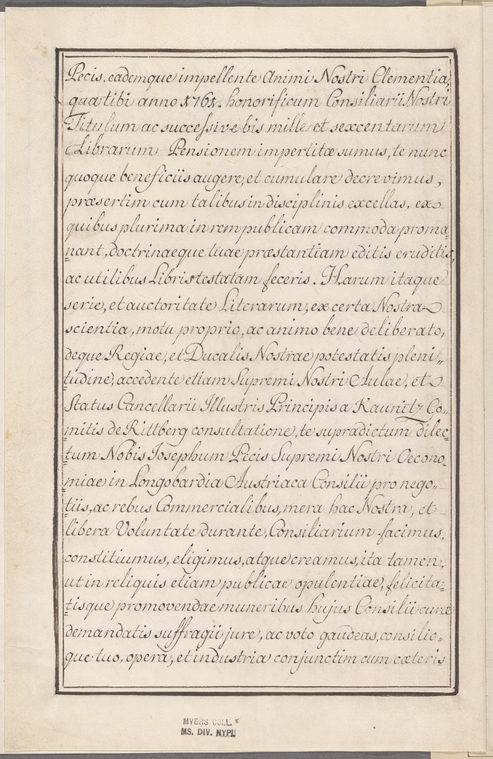 Pecis, eademque impellente Animi Nostri Clementia,
qua tibi anno 1761. honorificum Consiliarii Nostri
Titulum ac successive bis mille et sexcentarum
Librarum Pensionem impertitæ sumus, te nunc
quoque beneficiis augere, et cumulare decrevimus,
præsertim cum talibus in disciplinis excellas, ex
quibus plurima in rem publicam commoda proma=
nant, doctrinaeque tuae præstantiam editis eruditis,
ac utilibus Libris testatam feceris. Harum itaque
serie, et auctoritate Literarum, ex certa Nostra
scientia, motu proprio, ac animo bene deliberato,
deque Regiae, et Ducalis Nostrae potestatis pleni=
tudine, accedente etiam Supremi Nostri Aulae, et
Status Cancellarii Illustris Principis a Kaunitz Co=
mitis de Rittberg consultatione, te supradictum dilec
tum Nobis Josephum Pecis Supremi Nostri Oecono=
miae in Longobardia Austriaca Consilii pro nego=
tiis, ac rebus Commercialibus, mera hac Nostra, et
libera Voluntate durante, Consiliarium facimus,
constituimus, eligimus, atque creamus, ita tamen,
ut in reliquis etiam publicae opulentiae, felicita=
tisque promovendae muneribus hujus Consilii curæ
demandatis suffragii jure, ac voto gaudeas, consilio=
que tuo, opera, et industria conjunctim cum cæteris
MYERS COLL.
MS. DIV. NYPL